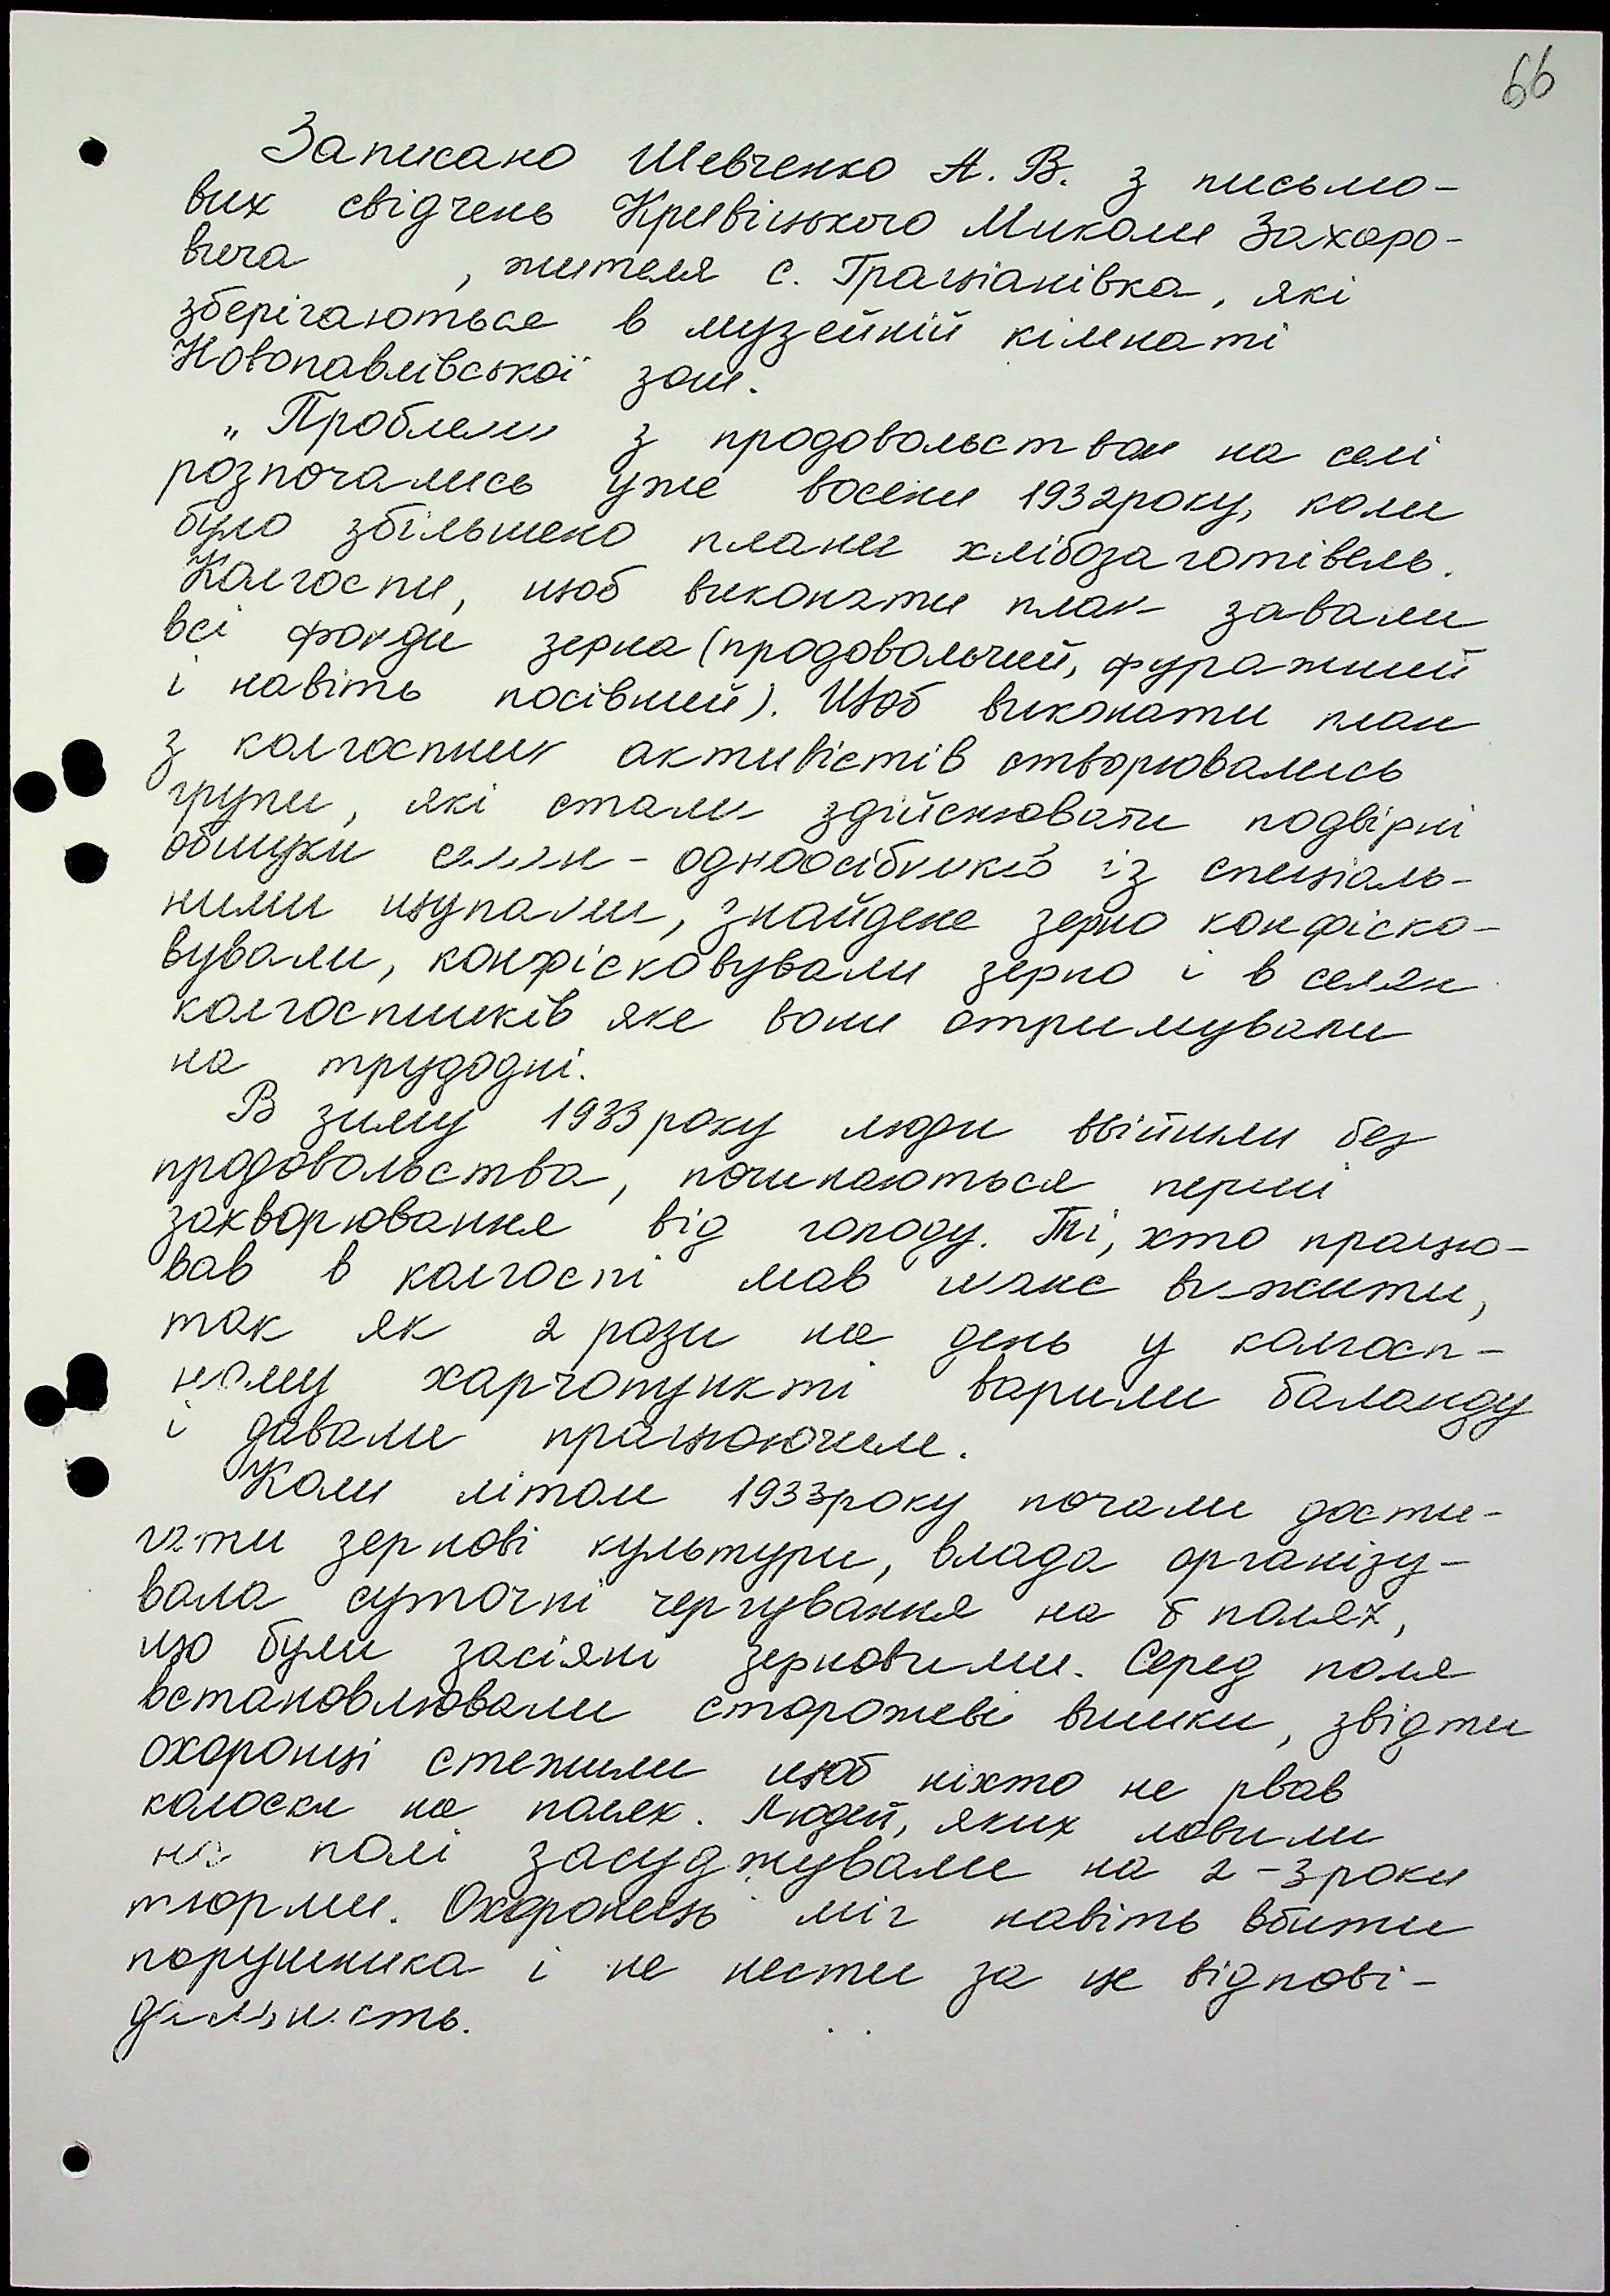 66
Записано Шевченко А. В. з письмо-
вих свідчень Кривіцького Миколи Захаро-
вича , жителя с. Граціанівка, які
зберігаються в музейній кімнаті
Новопавлівської зош.
„Проблеми з продовольством на селі
розпочались уже восени 1932року, коли
було збільшено плани хлібозаготівель.
Колгоспи, щоб виконати план здавали
всі фонди зерна (продовольчий, фуражний
і навіть посівний). Щоб виконати план
з колгоспних активістів створювались
групи, які стали здійснювати подвірні
обшуки селян - одноосібників із спеціаль-
ними щупами, знайдене зерно конфіско-
вували, конфісковували зерно і в селян
колгоспників яке вони отримували
на трудодні.
В зиму 1933року люди ввійшли без
продовольства, починаються перші
захворювання від голоду. Ті, хто працю-
вав в колгоспі мав шанс вижити,
так як 2 рази на день у колгосп-
ному харчопункті варили баланду
і давали працюючим.
Коли літом 1933року почали дости-
гати зернові культури, влада організу-
вала суточні чергування на полях,
що були засіяні зерновими. Серед поля
встановлювали сторожеві вишки, звідти
охоронці стежили щоб ніхто не рвав
колоски на полях. Людей, яких ловили
на полі засуджували на 2-3роки
тюрми. Охоронець міг навіть вбити
порушника і не нести за це відпові-
дальність.